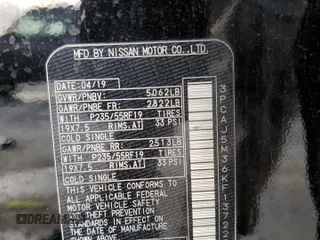 MFD BY NISSAN MOTOR CO., LTD.
DATE: 04/19
GVWR/PNBV: 5062LB
GAWR/PNBE FR: 2822LB
WITH P235/55RF19 TIRES
19X7.5 RIMS,AT 33 PSI
COLD SINGLE
GAWR/PNBE RR: 2513LB
WITH P235/55RF19 TIRES
19X7.5 RIMS,AT 33 PSI
COLD SINGLE
THIS VEHICLE CONFORMS TO
ALL APPLICABLE FEDERAL
MOTOR VEHICLE SAFETY
AND THEFT PREVENTION
STANDARDS IN EFFECT ON
THE DATE OF MANUFACTURE
SHOWN ABOVE.
3PCAJ5M36KF13722
DREAM